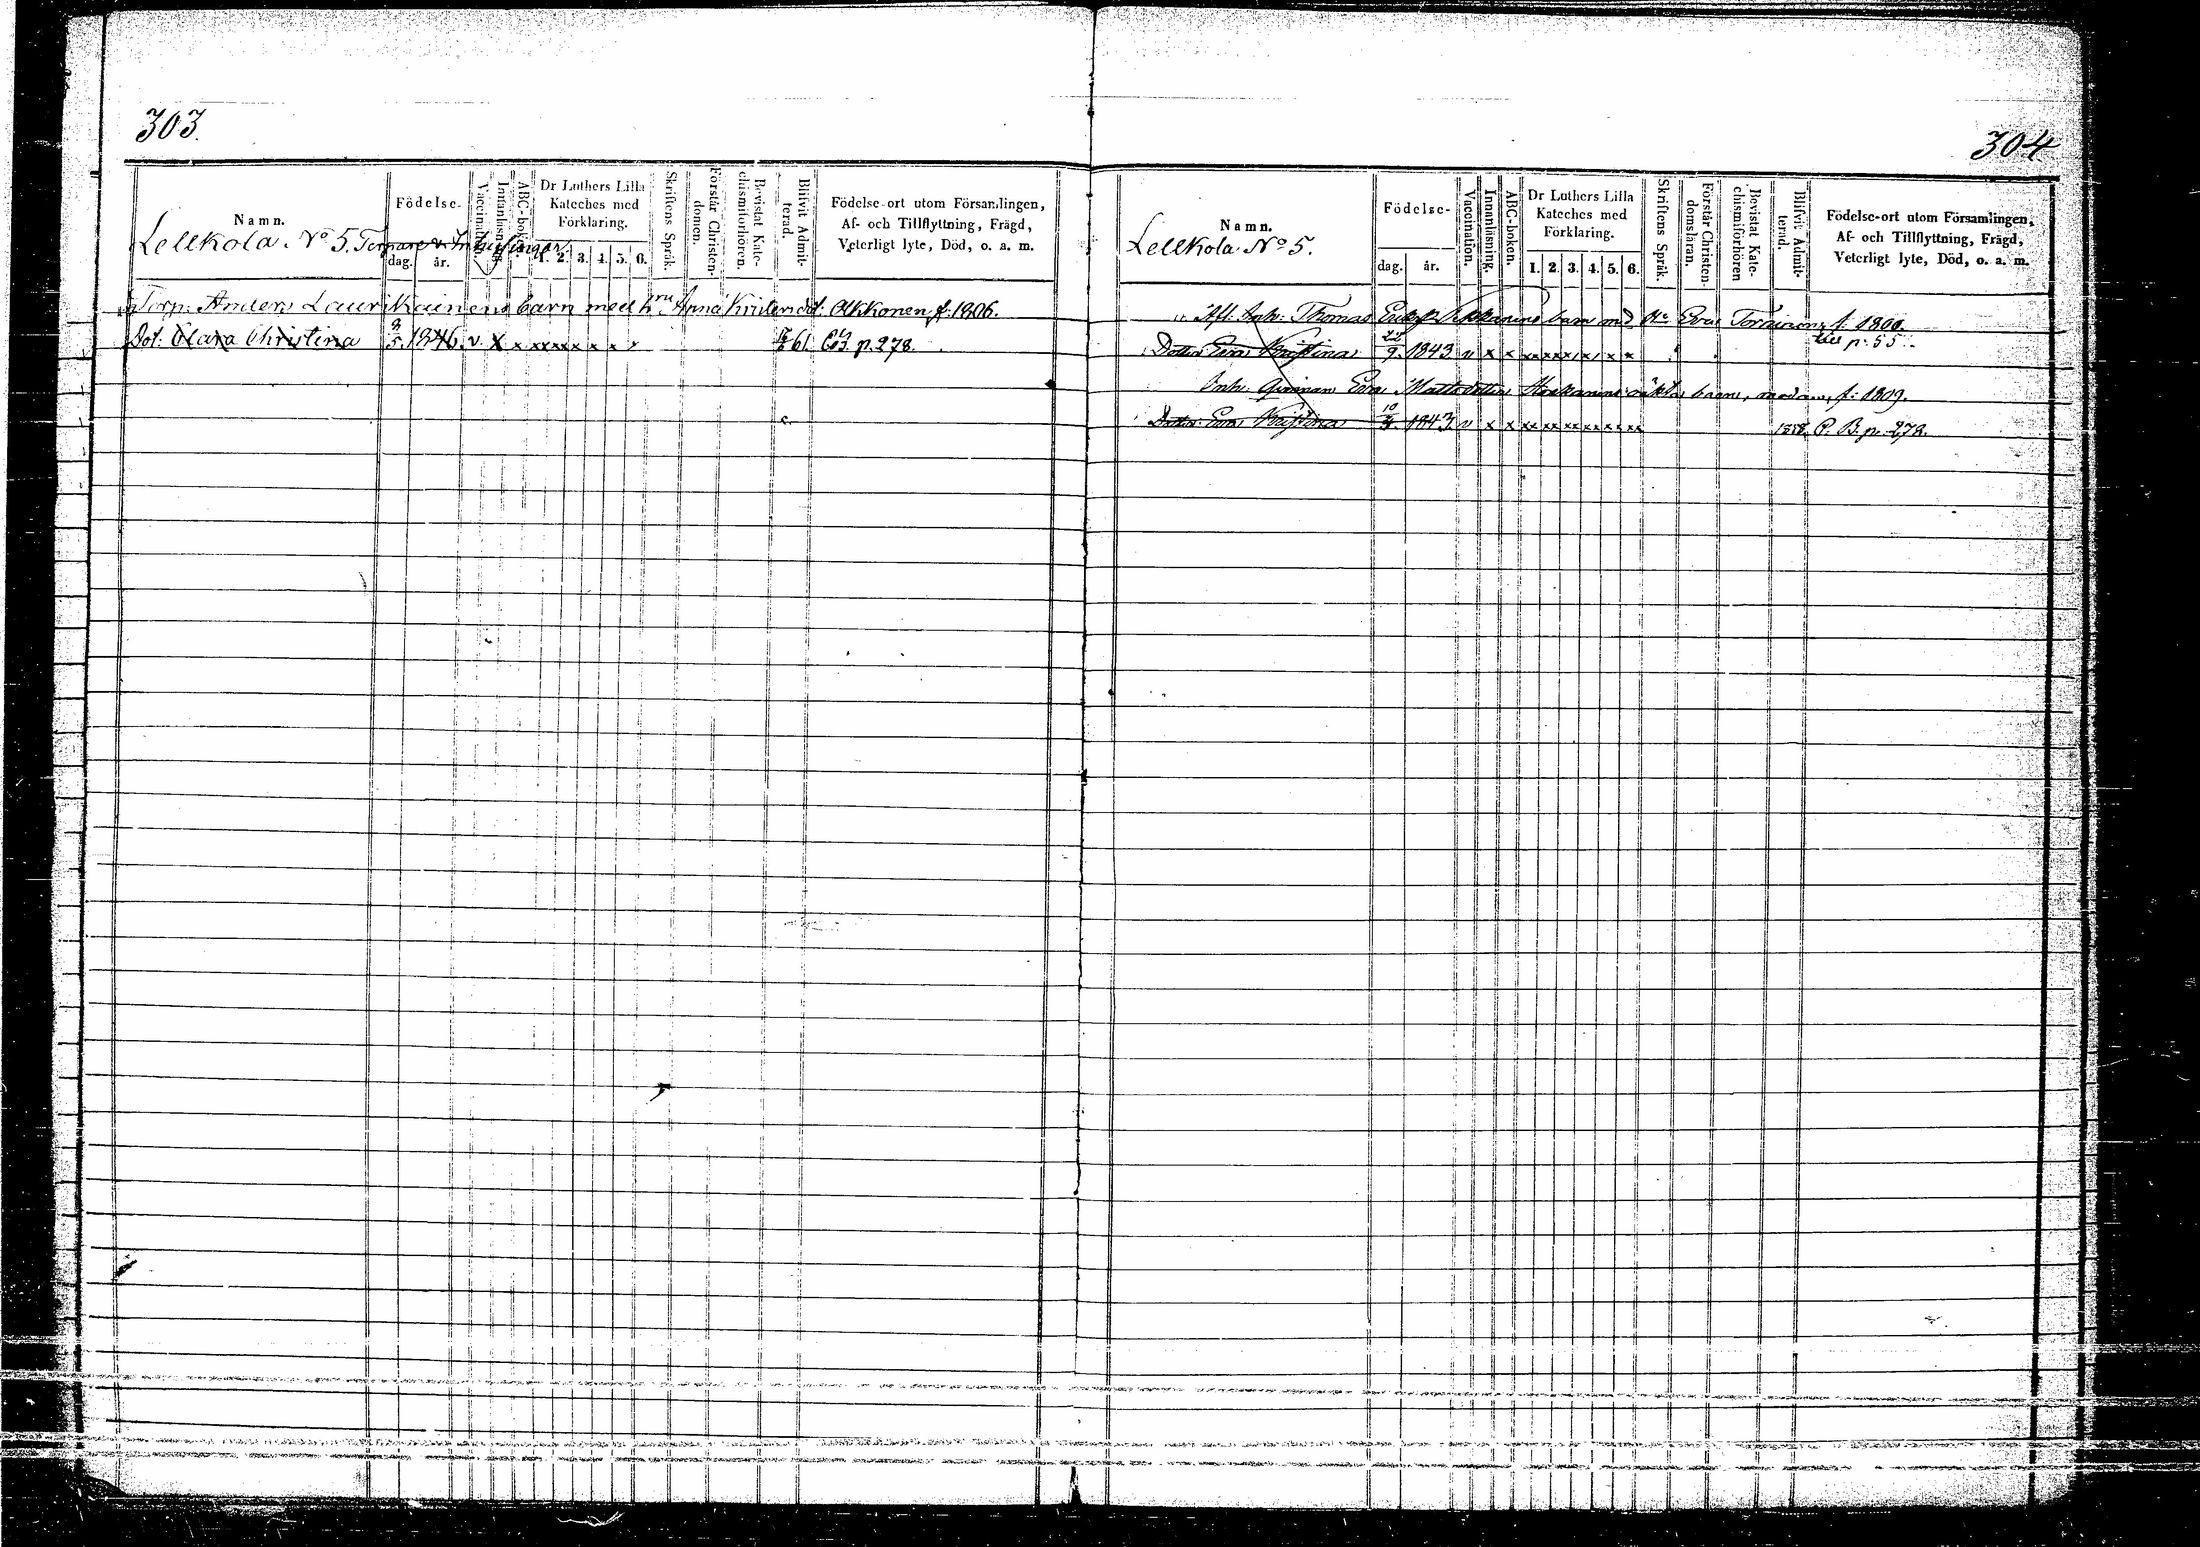 303.
Namn.
Födelse-
dag. år.
Vaccination.
Innanläsning.
ABC-boken.
Dr Luthers Lilla
Kateches med
Förklaring.
1. 2. 3. 4. 5. 6.
Skriftens Språk.
Förstår Christen-
domen.
Bevistat Kate-
chismiförhören.
Blifvit Admit-
terad.
Födelse-ort utom Församlingen,
Af- och Tillflyttning, Frägd,
Veterligt lyte, Död, o. a. m.
Lellkola No 5.
Torp. Anders Laurikainens barn med h Anna Kristersdot: f. 1806.
Dot. Clara Christina 9/5 1846. v x x xx xx x x x x 61 p. 278.
304
Namn.
Födelse-
dag. år.
Vaccination.
Innanläsning.
ABC-boken.
Dr Luthers Lilla
Kateches med
Förklaring.
1. 2. 3. 4. 5. 6.
Skriftens Språk.
Förstår Christen-
domsläran.
Bevistat Kate-
chismiförhören
Blifvit Admit-
terad.
Födelse-ort utom Församlingen,
Af- och Tillflyttning, Frägd,
Veterligt lyte, Död, o. a. m.
Lellkola No 5.
Afl. Inh: Thomas barn med Eva f. 1800.
p. 55.
Dotter Eva Kristina 9. 1843 v x x
Inh: Qvinnan Eva Mattsdotter barn, f. 1809.
Dotter Eva Kristina 1843 v x x P. B. p. 278.